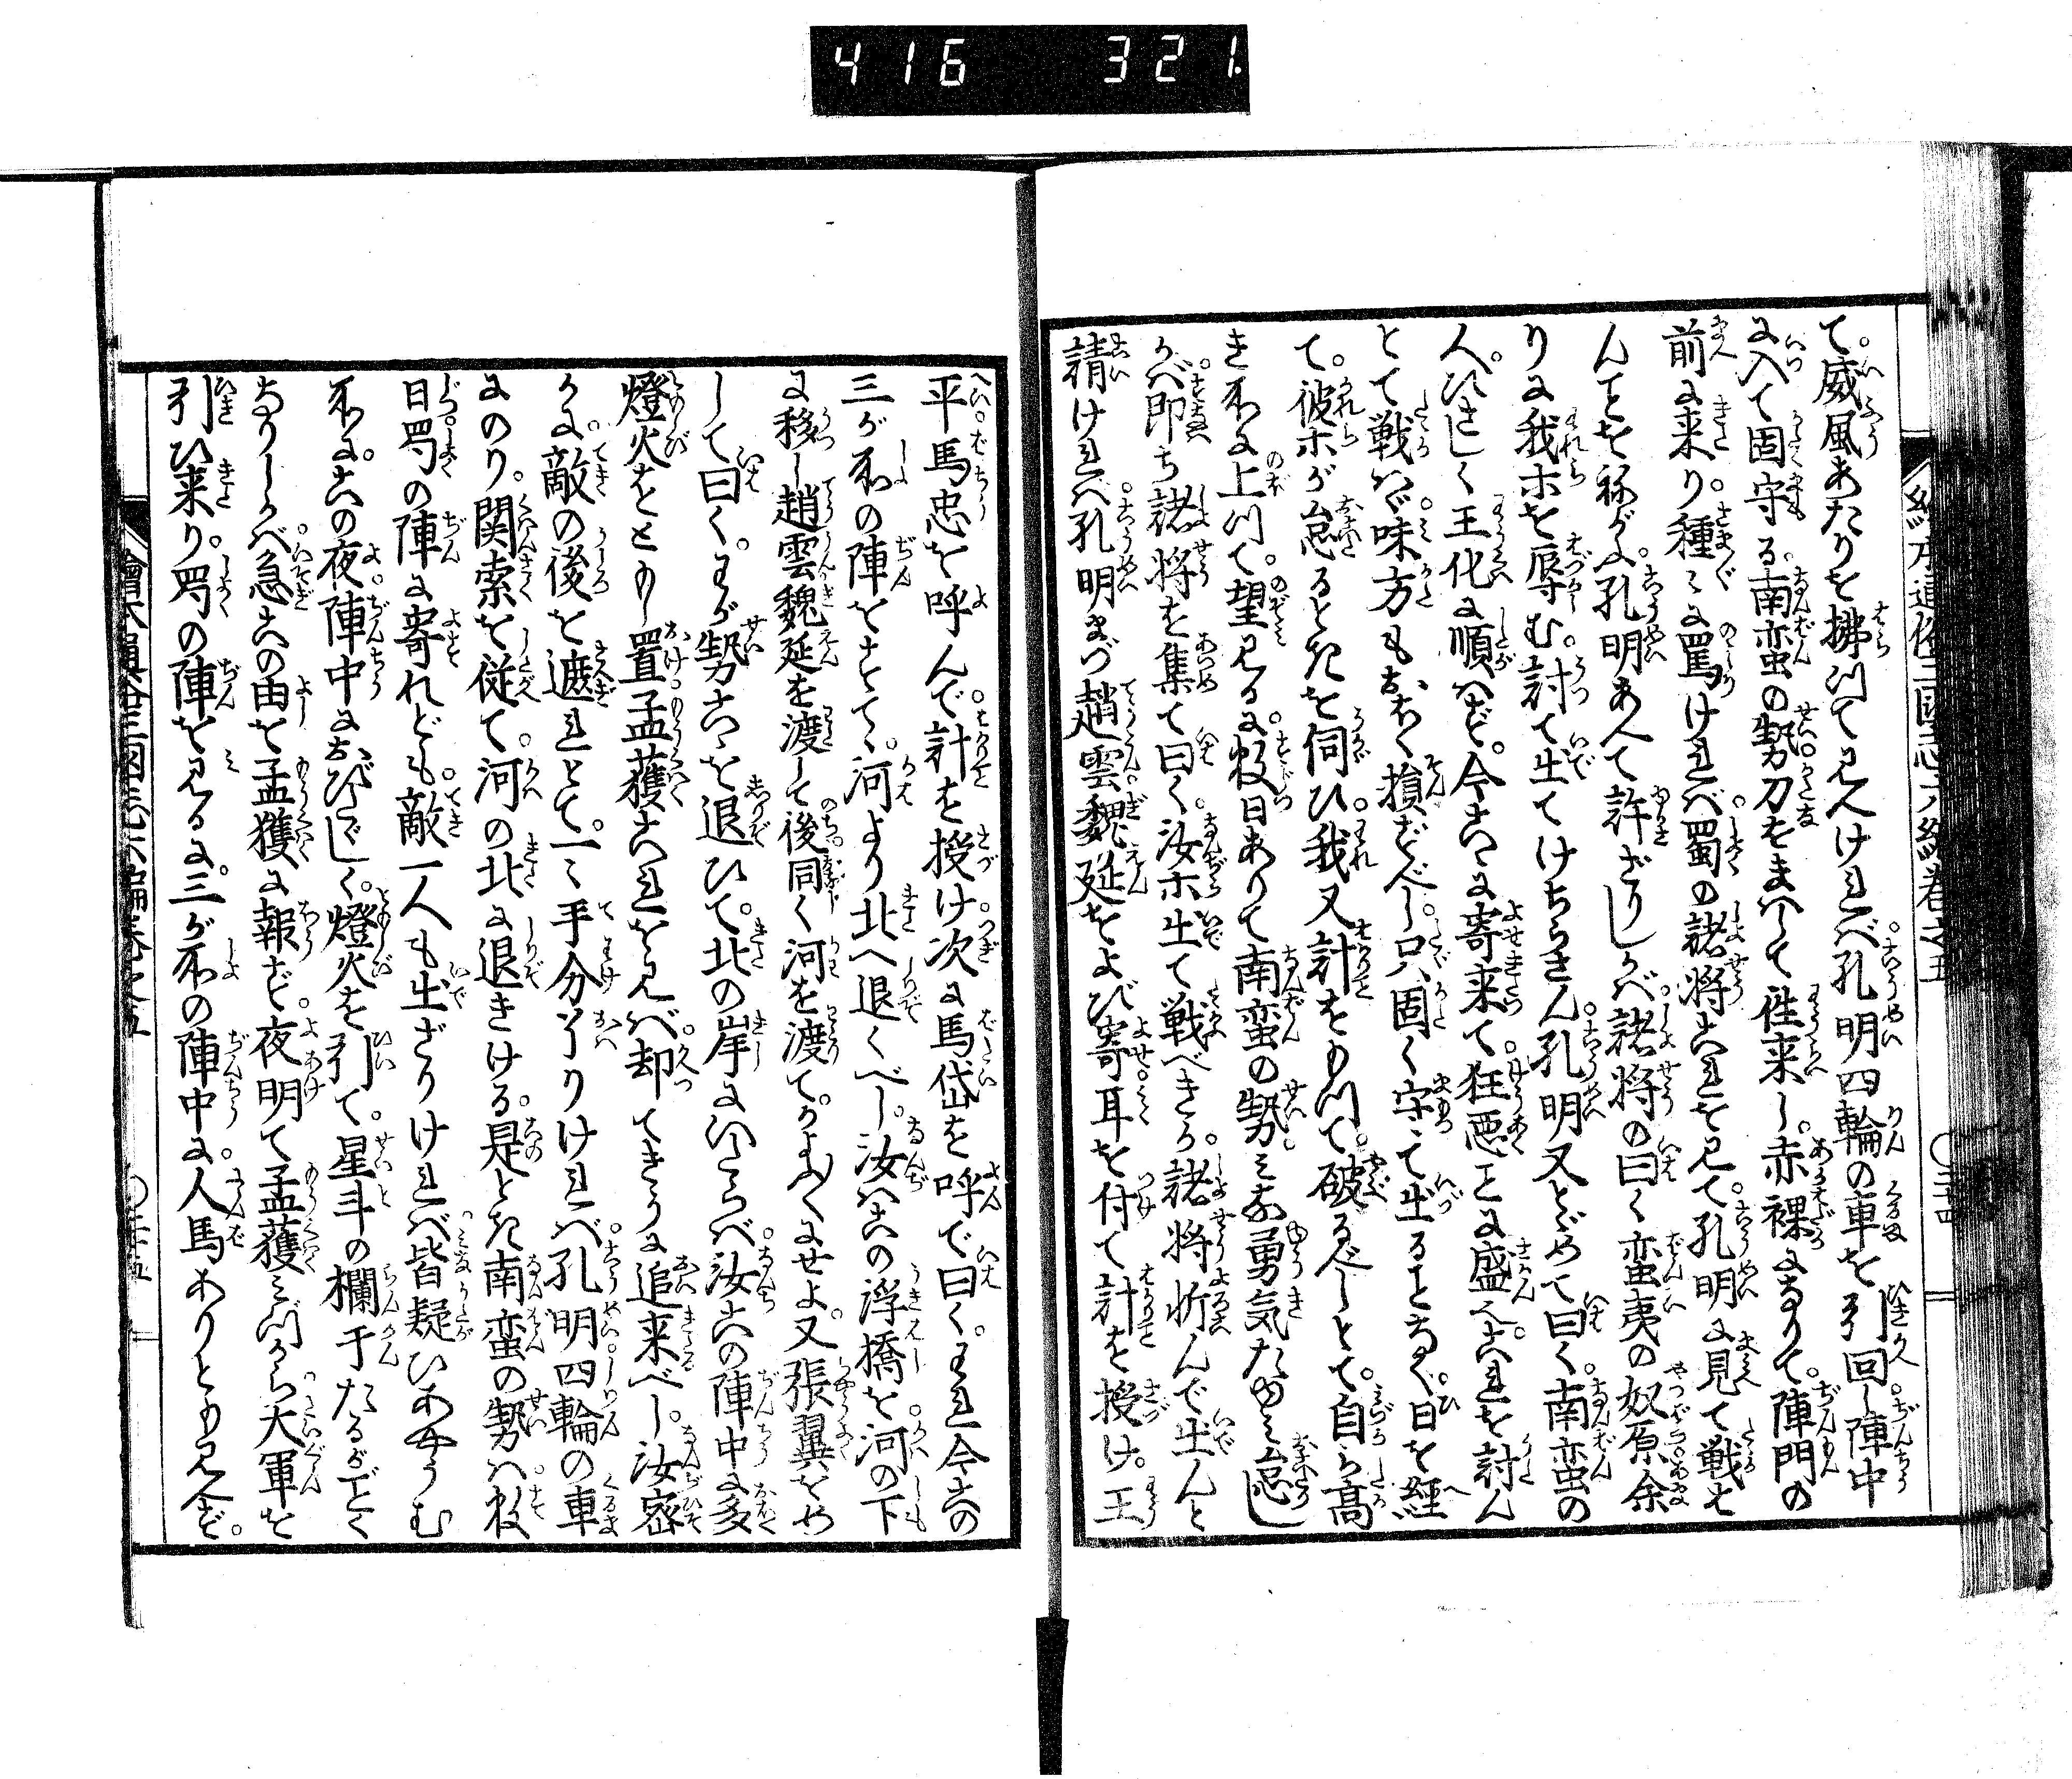 416 321.
繪本通俗三國志六編卷之五
○三十四
て。威風あたりを拂つて見へければ。孔明四輪の車を引回し陣中
に入て固守る。南蛮の勢刀をまハして徃来し。赤裸になりて。陣門の
前に来り。種〻に罵ければ。蜀の諸将これを見て。孔明に見て戦は
んことを祢がふ孔明あへて許ざりしかバ。諸将の曰く蛮夷の奴原余
りに我ホを辱む。討て出てけちらさん。孔明又とゞめて曰く。南蛮の
人。ひさしく王化に順ハず。今こゝに寄来て。狂悪ことに盛ん。これを討ん
とて戦ハゞ。味方もおほく損ずべし。只固く守て出ることなく。日を経
て。彼ホが怠るときを伺ひ。我又計をもつて。破るべしとて。自ら高
き所に上つて。望見るに。数日ありて南蛮の勢。みな勇気たゆミ怠し
かバ。即ち諸将を集て曰く。汝ホ出て戦べきか。諸将忻んで出んと
請ければ。孔明まづ趙雲。魏延をよび寄。耳を付て計を授け。王
平。馬忠を呼んで。計を授け。次に馬岱を呼で曰く。われ今この
三が所の陣をすて。河より北へ退くべし。汝ハこの浮橋を。河の下
に移し趙雲魏延を渡して後。同く河を渡て。かよふくませよ。又張翼をめ
して曰く。わが勢こゝを退ひて。北の岸にいたらバ。汝この陣中に多
燈火をともし置。孟獲これを見バ。却てきうに追来べし。汝密
かに。敵の後を遮れとて。一〻手分ありければ。孔明。四輪の車
にのり。関索を従て。河の北に退きける。是とき南蛮の勢ハ。数
日。蜀の陣に寄れども。敵一人も出ざりければ。皆疑ひあやうむ
所に。この夜。陣中におびたゞしく。燈火を引て。星斗の欄干たるがごとく
なりしかバ。急この由を孟獲に報ず。夜明て孟獲ミづから大軍を
引ひ来り。蜀の陣を見るに。三が所の陣中に。人馬ありとも見へず。
繪本通俗三國志六編卷之五
○三十五